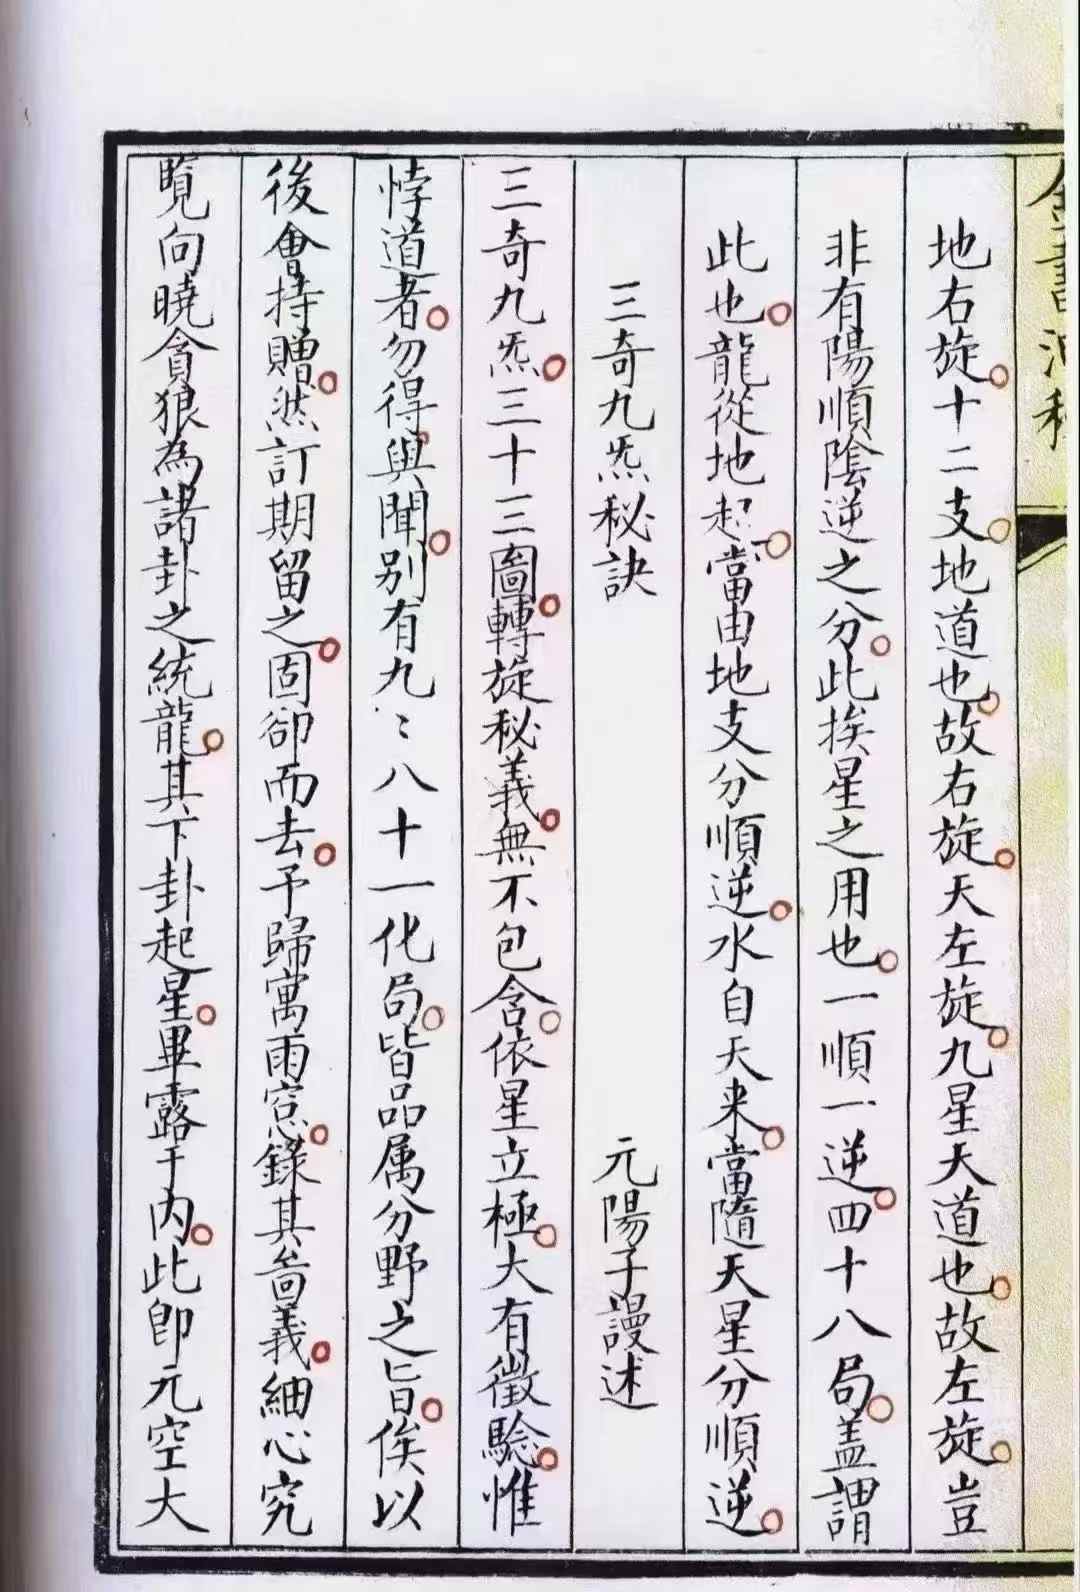 地右旋十二支地道也故右旋天左旋九星天道也故左旋豈
非有陽順陰逆之分此挨星之用也一順一逆四十八局盖謂
此也龍從地起當由地支分順逆水自天来當隨天星分順逆
三奇九炁秘訣 元陽子謾述
三奇九炁三十三圖轉旋秘義無不包含依星立極大有徵驗惟
悖道者勿得與聞別有九〻八十一化局皆品属分野之旨俟以
後會持贈然訂期留之固卻而去予歸寓雨窓錄其啚義細心究
覧向曉貪狼為諸卦之統龍其下卦起星畢露于内此即元空大